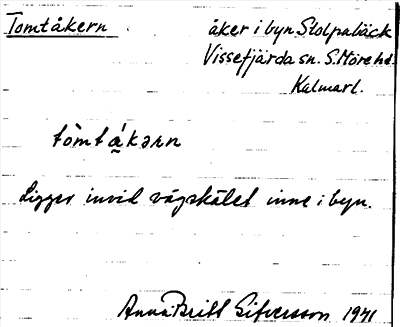 Tomtåkern åker i byn Stolpabäck
Vissefjärda sn. S. Möre hd.
Kalmar l.
tòmtá̤kərn
Ligger invid vägskälet inne i byn.
Anna-Britt Sifversson 1941